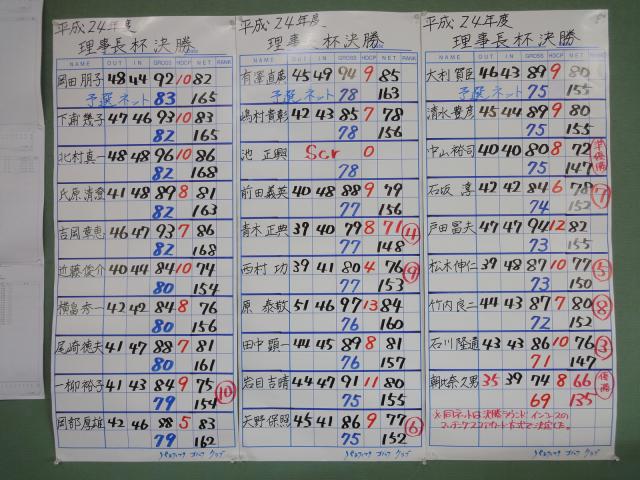 平成24年度
理事長杯決勝
NAME OUT IN GROSS HDCP NET RANK
岡田 朋子 48 44 92 10 82
予選ネット 83 165
下浦 幾子 47 46 93 10 83
82 165
北村 真一 48 48 96 10 86
82 168
氏原 清澄 41 48 89 8 81
82 163
吉岡 章恵 46 47 93 7 86
82 168
近藤 俊介 40 44 84 10 74
80 154
横畠 秀一 42 42 84 8 76
80 156
尾崎 徳夫 41 47 88 7 81
80 161
一柳 裕子 41 43 84 9 75
79 154 ⑩
岡部 厚雄 42 46 88 5 83
79 162
平成24年度
理事長杯決勝
NAME OUT IN GROSS HDCP NET RANK
有澤 直慶 45 49 94 9 85
予選ネット 78 163
嶋村 貴彰 42 43 85 7 78
78 156
池 正興 Scr 0
78
前田 義英 40 48 88 9 79
77 156
青木 正典 39 40 79 8 71
77 148 ④
西村 功 39 41 80 4 76
77 153 ⑨
原 泰敬 51 46 97 13 84
76 160
田中 顕一 44 45 89 8 81
76 157
岩目 吉晴 44 47 91 11 80
75 155
天野 保照 45 41 86 9 77
75 152 ⑥
平成24年度
理事長杯決勝
NAME OUT IN GROSS HDCP NET RANK
大利 賀臣 46 43 89 9 80
予選ネット 75 155
清水 豊彦 45 44 89 9 80
75 155
中山 裕司 40 40 80 8 72
75 147 準優勝
石坂 淳 42 42 84 6 78
74 152 ⑦
戸田 冨夫 47 47 94 12 82
73 155
松木 伸仁 39 48 87 10 77
73 150 ⑤
竹内 良二 44 43 87 7 80
72 152 ⑧
石川 陸通 43 43 86 10 76
71 147 ③
朝比奈 久男 35 39 74 8 66
69 135 優勝
※同ネットは決勝ラウンド インコースの
マッチングスコアカード方式で決定した。
パシフィック ゴルフ クラブ